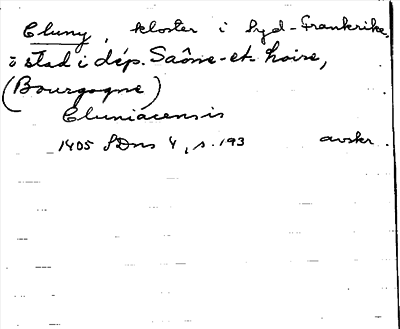 Cluny, kloster i Syd-Frankrike,
o stad i dép. Saône-et-Loire,
(Bourgogne)
Cluniacensis
1405 SDns 4, s. 193 avskr.